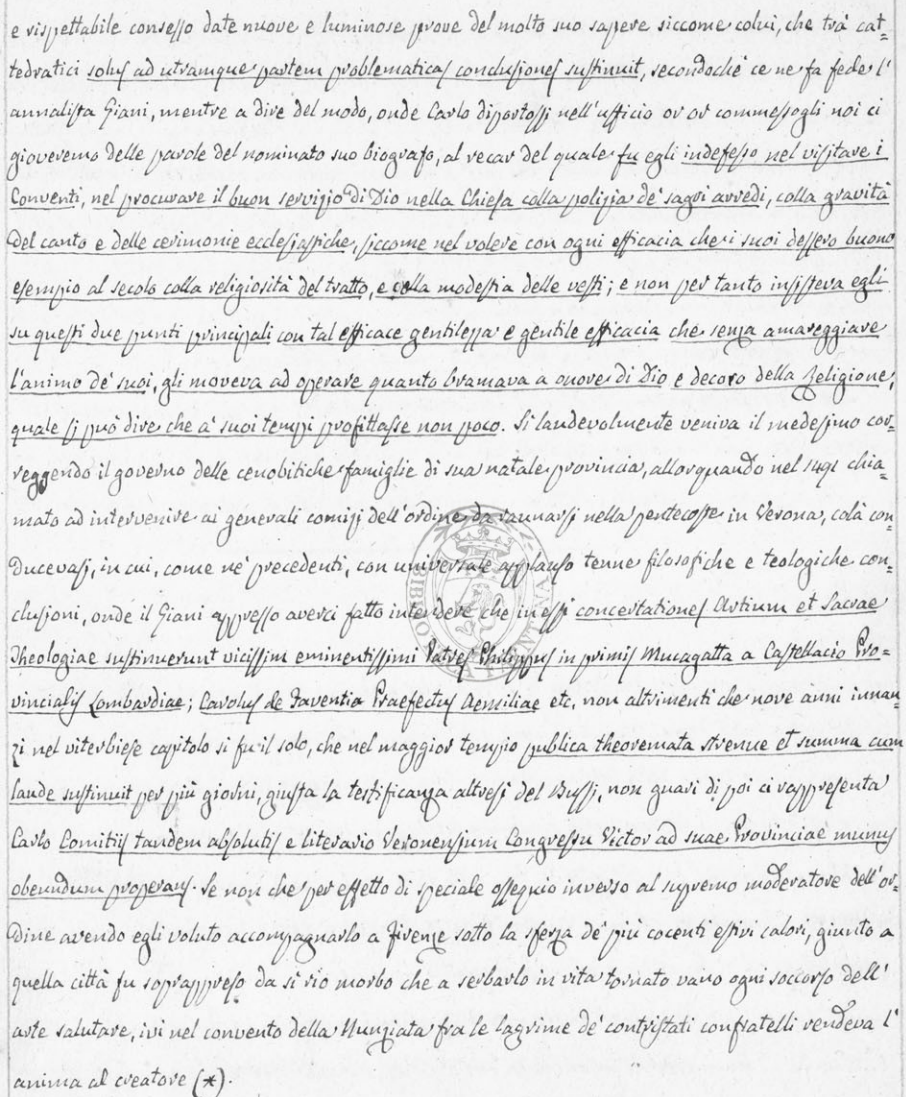 e rispettabile consesso date nuove e luminose prove del molto suo sapere siccome colui, che trà cat=
tedratici solus ad utramque partem problematicas conclusiones sustinuit, secondochè ce ne fa fede l'
annalista Giani, mentre a dire del modo, onde Carlo diportossi nell'ufficio or or commessogli noi ci
gioveremo delle parole del nominato suo biografo, al recar del quale fu egli indefesso nel visitare i
Conventi, nel procurare il buon servizio di Dio nella Chiesa colla polizia de' sagri arredi, colla gravità
del canto e delle cerimonie ecclesiastiche, siccome nel volere con ogni efficacia che i suoi dessero buono
esempio al secolo colla religiosità del tratto, e colla modestia delle vesti; e non per tanto insisteva egli
su questi due punti principali con tal efficace gentilezza e gentile efficacia che senza amareggiare
l'animo de' suoi, gli moveva ad operare quanto bramava a onore di Dio e decoro della Religione,
quale si può dire che a' suoi tempi profittasse non poco. Sì laudevolmente veniva il medesimo cor=
reggendo il governo delle cenobitiche famiglie di sua natale provincia, allorquando nel 1491 chia=
mato ad intervenire ai generali comizi dell'ordine da raunarsi nella pentecoste in Verona, colà con=
ducevasi, in cui, come ne' precedenti, con universale applauso tenne filosofiche e teologiche con=
clusioni, onde il Giani appresso averci fatto intendere che in essi concertationes Artium et Sacrae
Theologiae sustinuerunt vicissim eminentissimi Patres Philippus in primis Mucagatta a Castellacio Pro=
vincialis Lombardiae; Carolus de Faventia Praefectus Aemiliae etc, non altrimenti che nove anni innan=
zi nel viterbiese capitolo si fu il solo, che nel maggior tempio publica theoremata strenue et summa cum
laude sustinuit per più giorni, giusta la testificanza altresì del Bussi, non guari di poi ci rappresenta
Carlo Comitiis tandem absolutis e literario Veronensium Congressu Victor ad suae Provinciae munus
obeundum properans. Se non che per effetto di speciale ossequio inverso al supremo moderatore dell'or=
dine avendo egli voluto accompagnarlo a Firenze sotto la sferza de' più cocenti estivi calori, giunto a
quella città fu soprappreso da sì rio morbo che a serbarlo in vita tornato vano ogni soccorso dell'
arte salutare, ivi nel convento della Nunziata fra le lagrime de' contristati confratelli rendeva l'
anima al creatore (*).